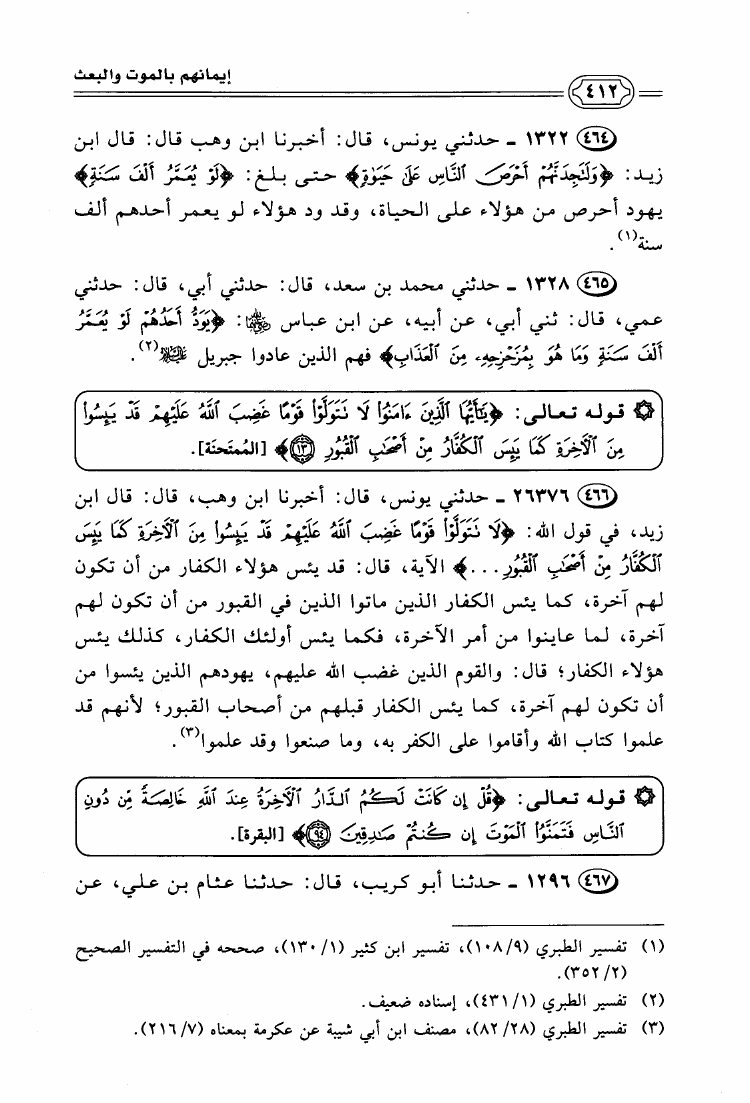 إيمانهم بالموت والبعث
٤١٢
٤٦٤ ١٣٢٢ ـ حدثني يونس، قال: أخبرنا ابن وهب قال: قال ابن
زيد: ﴿وَلَنَجِدَنَّهُمْ أَحْرَصَ النَّاسِ عَلَىٰ حَيَوٰةٍ﴾ حتى بلغ: ﴿لَوْ يُعَمَّرُ أَلْفَ سَنَةٍ﴾
يهود أحرص من هؤلاء على الحياة، وقد ود هؤلاء لو يعمر أحدهم ألف
سنة(١).
٤٦٥ ١٣٢٨ ـ حدثني محمد بن سعد، قال: حدثني أبي، قال: حدثني
عمي، قال: ثني أبي، عن أبيه، عن ابن عباس: ﴿يَوَدُّ أَحَدُهُمْ لَوْ يُعَمَّرُ
أَلْفَ سَنَةٍ وَمَا هُوَ بِمُزَحْزِحِهِۦ مِنَ الْعَذَابِ﴾ فهم الذين عادوا جبريل(٢).
قوله تعالى: ﴿يَٰٓأَيُّهَا الَّذِينَ ءَامَنُوا لَا نَتَوَلَّوْا قَوْمًا غَضِبَ اللَّهُ عَلَيْهِمْ قَدْ يَئِسُوا
مِنَ الْآخِرَةِ كَمَا يَئِسَ الْكُفَّارُ مِنْ أَصْحَٰبِ الْقُبُورِ ١٣﴾ [الممتحنة].
٤٦٦ ٢٦٣٧٦ ـ حدثني يونس، قال: أخبرنا ابن وهب، قال: قال ابن
زيد، في قول الله: ﴿لَا نَتَوَلَّوْا قَوْمًا غَضِبَ اللَّهُ عَلَيْهِمْ قَدْ يَئِسُوا مِنَ الْآخِرَةِ كَمَا يَئِسَ
الْكُفَّارُ مِنْ أَصْحَٰبِ الْقُبُورِ...﴾ الآية، قال: قد يئس هؤلاء الكفار من أن تكون
لهم آخرة، كما يئس الكفار الذين ماتوا الذين في القبور من أن تكون لهم
آخرة، لما عاينوا من أمر الآخرة، فكما يئس أولئك الكفار، كذلك يئس
هؤلاء الكفار؛ قال: والقوم الذين غضب الله عليهم، يهودهم الذين يئسوا من
أن تكون لهم آخرة، كما يئس الكفار قبلهم من أصحاب القبور؛ لأنهم قد
علموا كتاب الله وأقاموا على الكفر به، وما صنعوا وقد علموا(٣).
قوله تعالى: ﴿قُلْ إِن كَانَتْ لَكُمُ الدَّارُ الْآخِرَةُ عِندَ اللَّهِ خَالِصَةً مِّن دُونِ
النَّاسِ فَتَمَنَّوُا الْمَوْتَ إِن كُنتُمْ صَٰدِقِينَ ٩٤﴾ [البقرة].
٤٦٧ ١٢٩٦ ـ حدثنا أبو كريب، قال: حدثنا عثام بن علي، عن
(١) تفسير الطبري (١٠٨/٩)، تفسير ابن كثير (١٣٠/١)، صححه في التفسير الصحيح
(٣٥٢/٢).
(٢) تفسير الطبري (٤٣١/١)، إسناده ضعيف.
(٣) تفسير الطبري (٨٢/٢٨)، مصنف ابن أبي شيبة عن عكرمة بمعناه (٢١٦/٧).